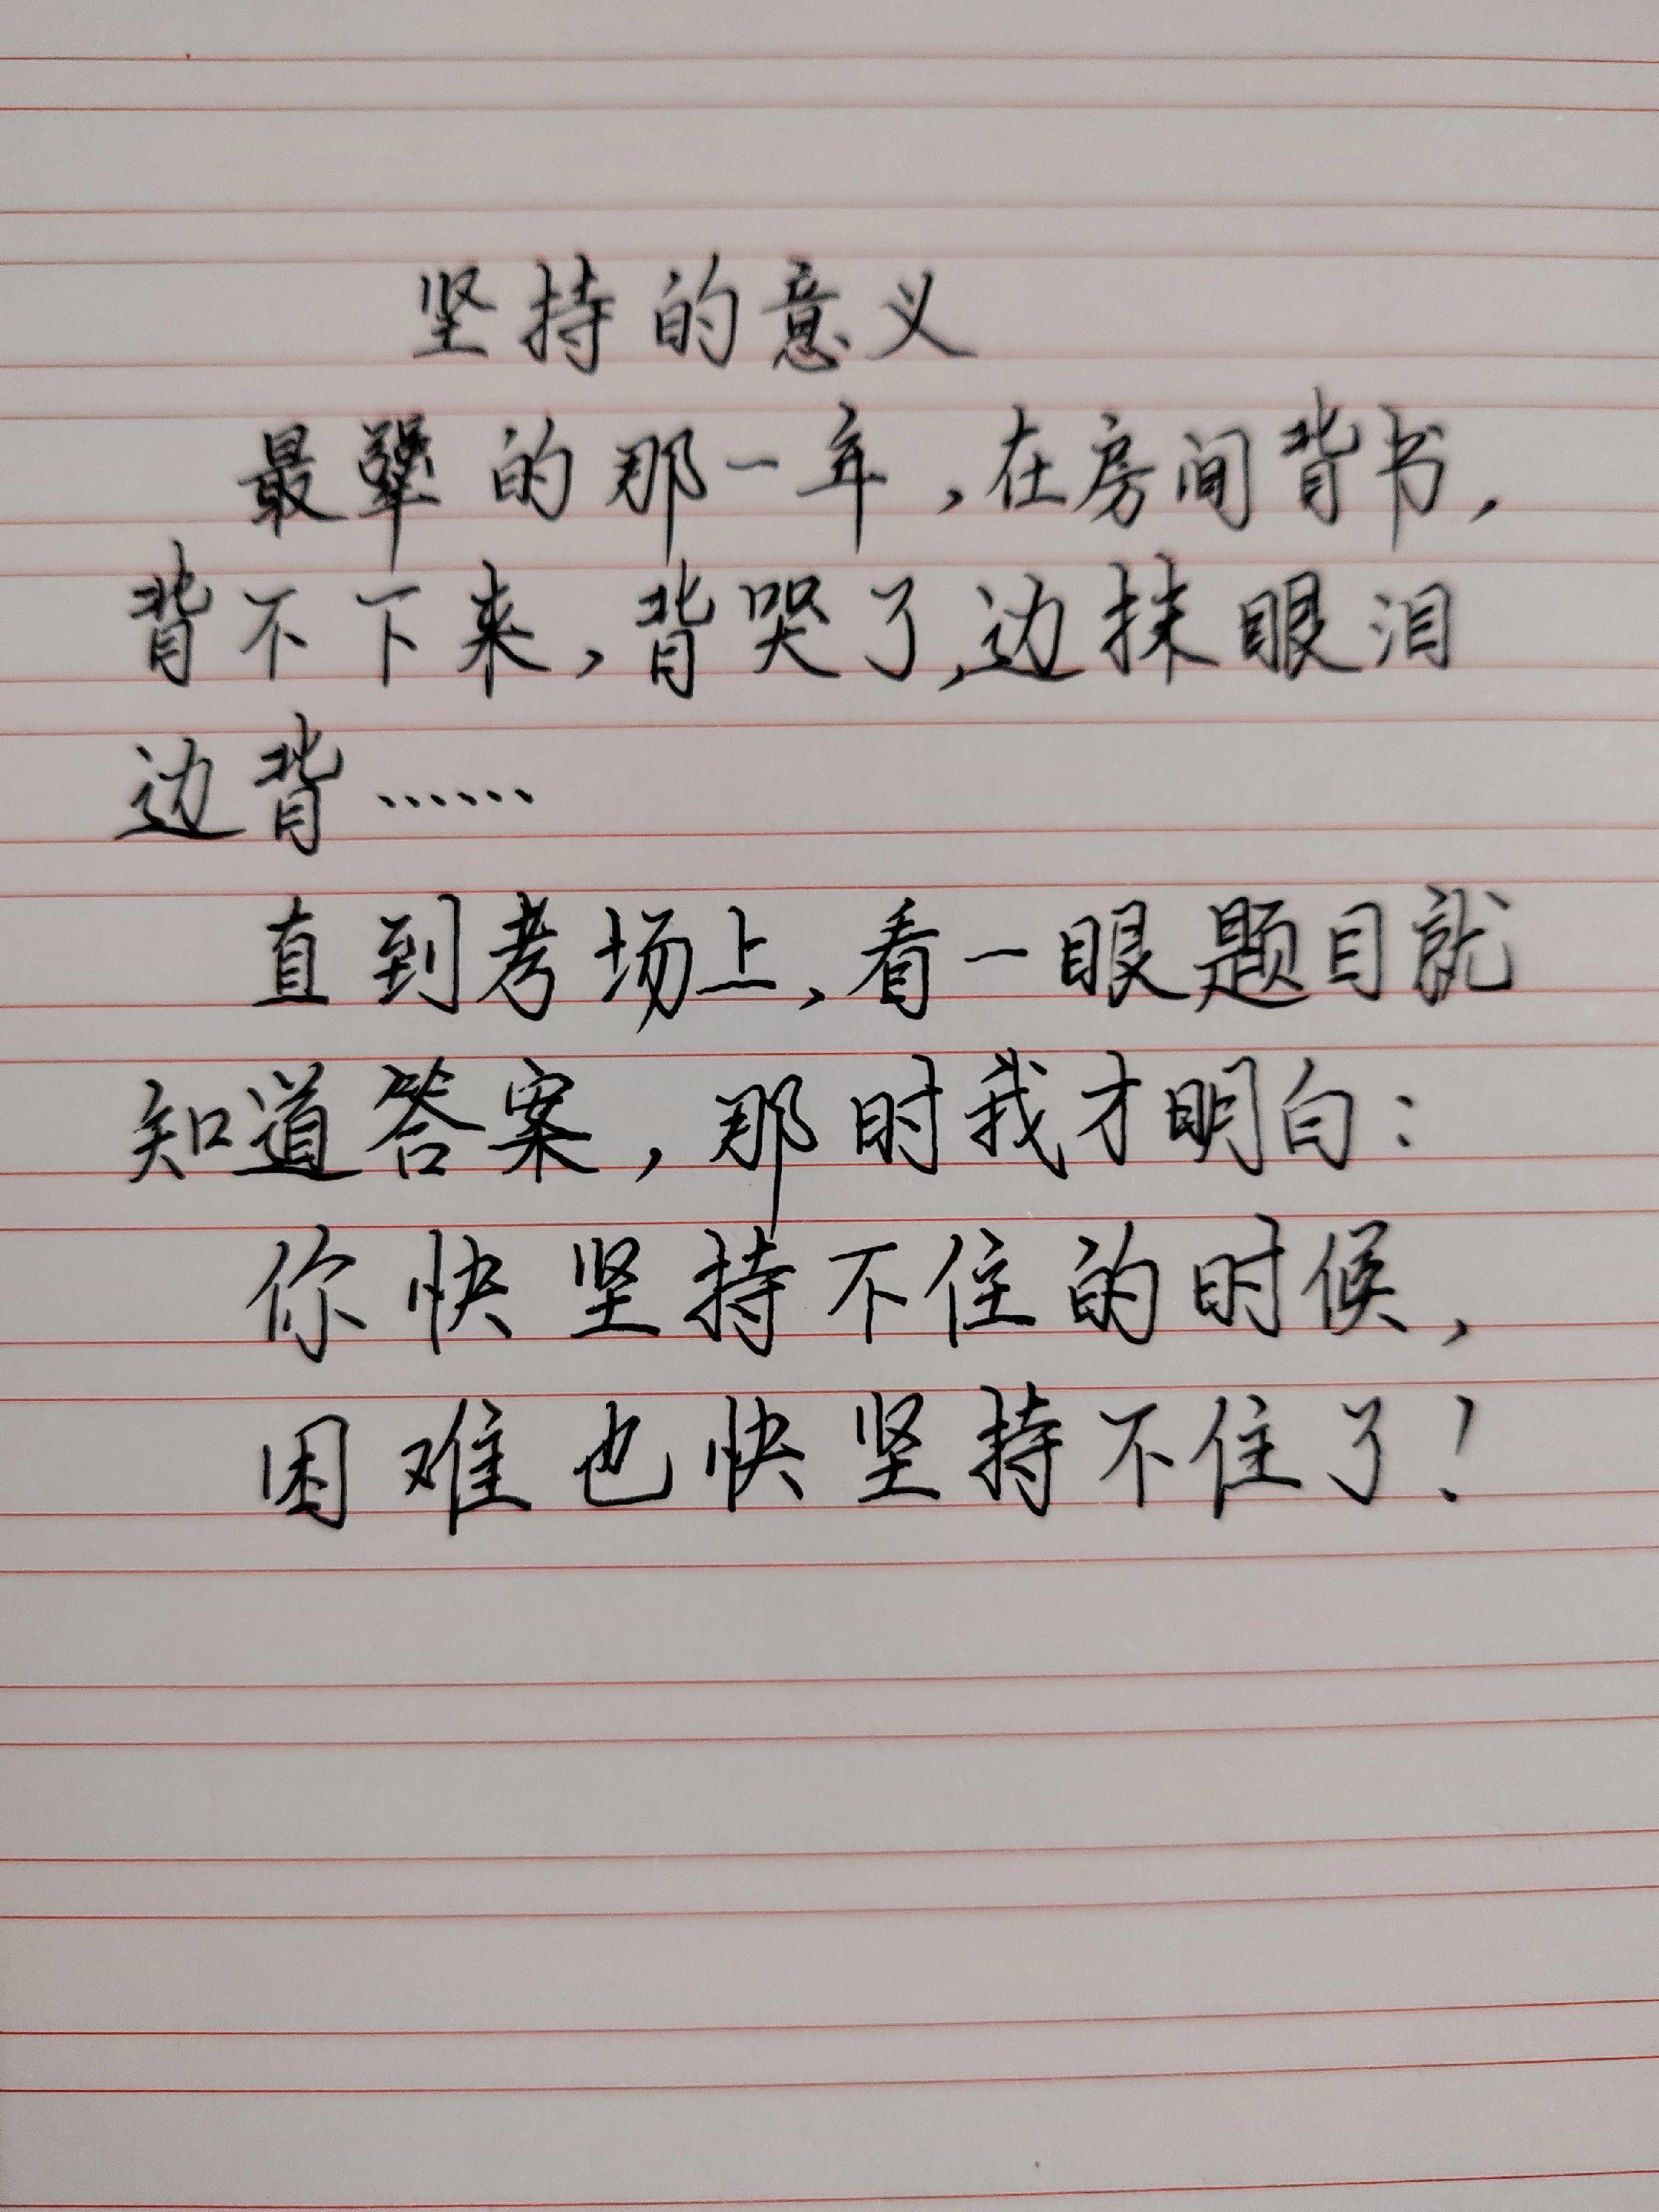 坚持的意义
最的那一年，在房间背书，
背不下来，背哭了，边抹眼泪
边背……
直到考场上，看一眼题目就
知道答案，那时我才明白：
你快坚持不住的时候，
困难也快坚持不住了！